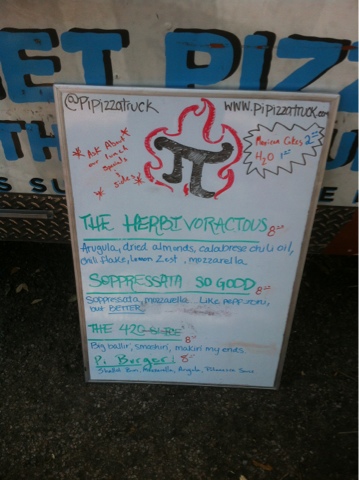 ET PIZZ
TH
@PiPizzatruck
www.PiPizzatruck.com
* Ask About
our lunch
Specials
* & Sides *
Mexican Cokes 2
H2O 1
π
THE HERBIVORACIOUS 8
Arugula, dried almonds, calabrese chili oil,
chili flake, lemon Zest, mozzarella
SOPPRESSATA SO GOOD 8
Soppressata, mozzarella Like pepperoni,
but BETTER
THE 420 8
Big ballin, smashin, makin my ends
Pi Burger! 8
Bun, Mozzarella, Arugula,